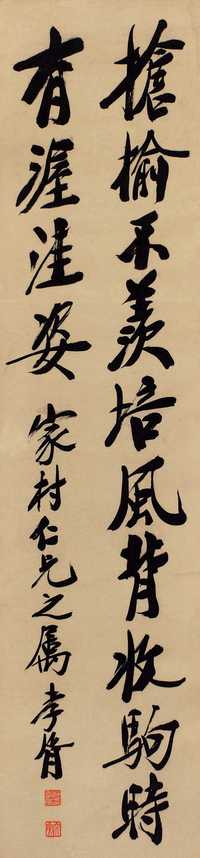 搶榆不羨培風背收駒時
有渥洼姿 家村仁兄之属 孝胥